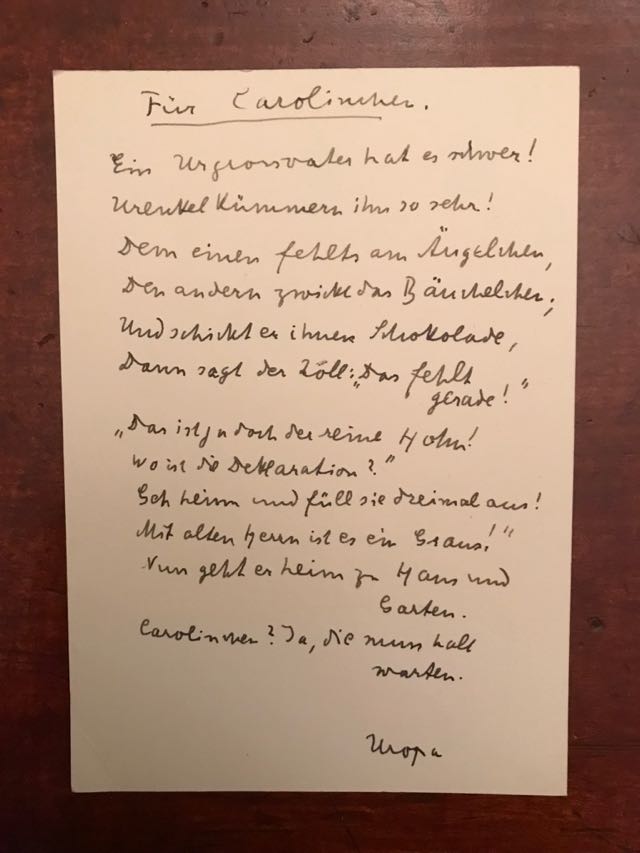 Für Carolinchen.
Ein Urgrossvater hat es schwer!
Urenkel kümmern ihn so sehr!
Dem einen fehlts am Äugelchen,
Den andern zwickt das Bäuchelchen;
Und schickt er ihnen Schokolade,
Dann sagt der Zöll: „Das fehlt
gerade!"
„Das ist ja doch der reine Hohn!
Wo ist die Deklaration?"
Geh heim und füll sie dreimal aus!
Mit alten Herrn ist es ein Graus!"
Nun geht er heim zu Haus und
Garten.
Carolinchen? Ja, die muss halt
warten.
Uropa